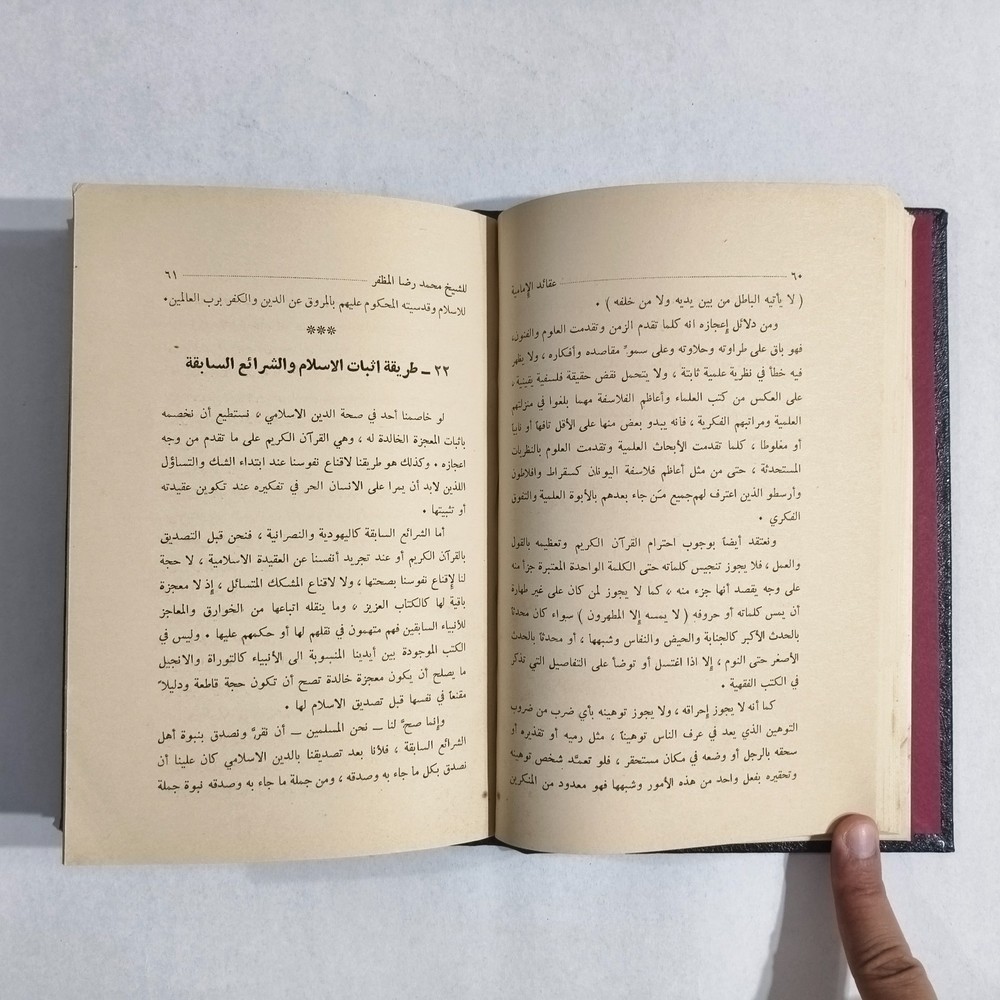 ٦٠ عقائد الإمامية
( لا يأتيه الباطل من بين يديه ولا من خلفه ) ٠
ومن دلائل إعجازه انه كلما تقدم الزمن وتقدمت العلوم والفنون،
فهو باق على طراوته وحلاوته وعلى سموّ مقاصده وأفكاره ، ولا يظهر
فيه خطأ في نظرية علمية ثابتة ، ولا يتحمل نقض حقيقة فلسفية يقينية ،
على العكس من كتب العلماء وأعاظم الفلاسفة مهما بلغوا في منزلتهم
العلمية ومراتبهم الفكرية ، فانه يبدو بعض منها على الأقل تافهاً أو نابياً
أو مغلوطا ، كلما تقدمت الأبحاث العلمية وتقدمت العلوم بالنظريات
المستحدثة ، حتى من مثل أعاظم فلاسفة اليونان كسقراط وافلاطون
وأرسطو الذين اعترف لهم جميع من جاء بعدهم بالأبوة العلمية والتفوق
الفكري ٠
ونعتقد أيضاً بوجوب احترام القرآن الكريم وتعظيمه بالقول
والعمل ، فلا يجوز تنجيس كلماته حتى الكلمة الواحدة المعتبرة جزأ منه
على وجه يقصد أنها جزء منه ، كما لا يجوز لمن كان على غير طهارة
أن يمس كلماته أو حروفه ( لا يمسه إلا المطهرون ) سواء كان محدثا
بالحدث الأكبر كالجنابة والحيض والنفاس وشبهها ، أو محدثاً بالحدث
الأصغر حتى النوم ، إلا اذا اغتسل أو توضأ على التفاصيل التي تذكر
في الكتب الفقهية ٠
كما أنه لا يجوز إحراقه ، ولا يجوز توهينه بأي ضرب من ضروب
التوهين الذي يعد في عرف الناس توهيناً ، مثل رميه أو تقذيره أو
سحقه بالرجل أو وضعه في مكان مستحقر ، فلو تعمّد شخص توهينه
وتحقيره بفعل واحد من هذه الأمور وشبهها فهو معدود من المنكرين
للشيخ محمد رضا المظفر ٦١
للاسلام وقدسيته المحكوم عليهم بالمروق عن الدين والكفر برب العالمين٠
***
٢٢ ــ طريقة اثبات الاسلام والشرائع السابقة
لو خاصمنا أحد في صحة الدين الاسلامي ، نستطيع أن نخصمه
باثبات المعجزة الخالدة له ، وهي القرآن الكريم على ما تقدم من وجه
اعجازه ٠ وكذلك هو طريقنا لاقناع نفوسنا عند ابتداء الشك والتساؤل
اللذين لابد أن يمرا على الانسان الحر في تفكيره عند تكوين عقيدته
أو تثبيتها ٠
أما الشرائع السابقة كاليهودية والنصرانية ، فنحن قبل التصديق
بالقرآن الكريم أو عند تجريد أنفسنا عن العقيدة الاسلامية ، لا حجة
لنا لإقناع نفوسنا بصحتها ، ولا لاقناع المشكك المتسائل ، إذ لا معجزة
باقية لها كالكتاب العزيز ، وما ينقله اتباعها من الخوارق والمعاجز
للأنبياء السابقين فهم متهمون في نقلهم لها أو حكمهم عليها ٠ وليس في
الكتب الموجودة بين أيدينا المنسوبة الى الأنبياء كالتوراة والانجيل
ما يصلح أن يكون معجزة خالدة تصح أن تكون حجة قاطعة ودليلاً
مقنعاً في نفسها قبل تصديق الاسلام لها ٠
وإنما صحّ لنا ــ نحن المسلمين ــ أن نقرّ ونصدق بنبوة أهل
الشرائع السابقة ، فلأنا بعد تصديقنا بالدين الاسلامي كان علينا أن
نصدق بكل ما جاء به وصدقه ، ومن جملة ما جاء به وصدقه نبوة جملة